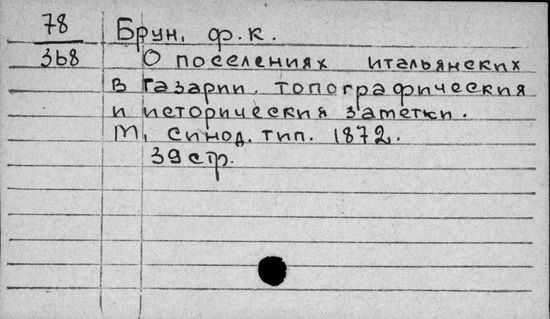 78
368
Брун, Ф.К.
О поселениях итальянских
в Газарии. топографическия
и историческия заметки.
М, синод. тип. 1872.
39 стр.